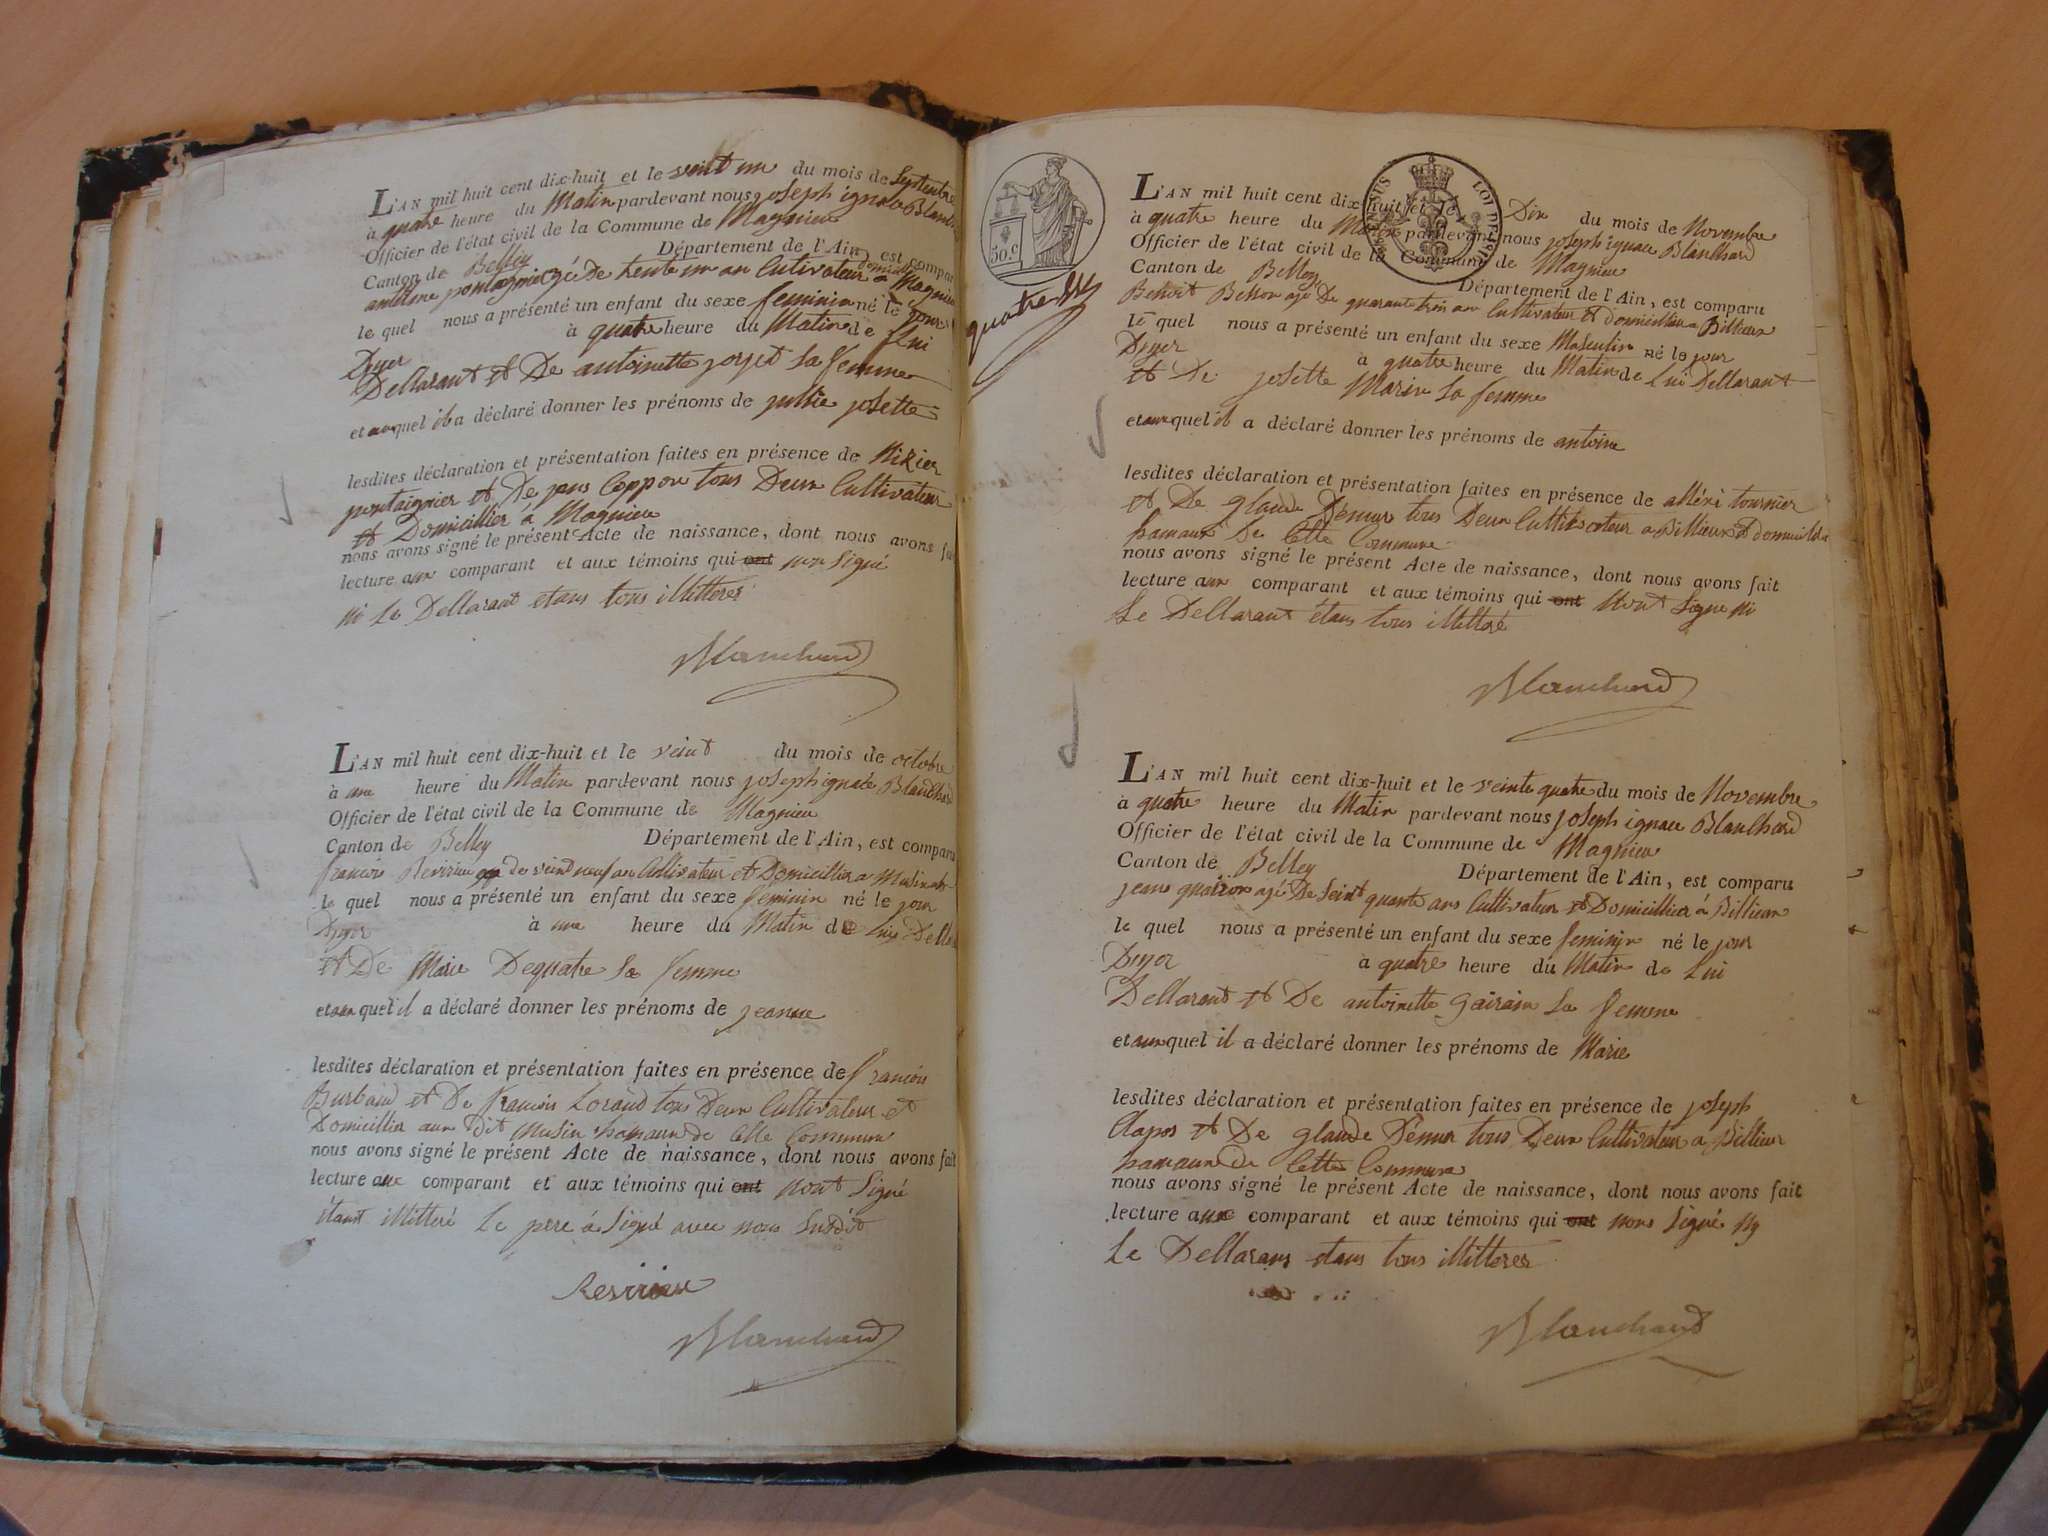 L'AN mil huit cent dix-huit et le veint un du mois de Septembre
à quatre heure du Matin pardevant nous joseph ignace
Officier de l'état civil de la Commune de Magnieu
Canton de Belley Département de l'Ain, est
antoine agé de trente un an Cultivateur domicillier a Magnieu
le quel nous a présenté un enfant du sexe feminin né le jour
Dyer à quatre heure du Matin de Lui
Dellarant et De antoinette jorjet Sa femme
et auquel il a déclaré donner les prénoms de jullie josette
lesdites déclaration et présentation faites en présence de Nizier
pontaignier et De jans Coppon tous Deux Cultivateur
et Domicillier à Magnieu
nous avons signé le présent Acte de naissance, dont nous avons
lecture aux comparant et aux témoins qui ont non Signé
ni Le Dellarant etans tous illitterez
Blanchard
L'AN mil huit cent dix-huit et le veint du mois de octobre
à une heure du Matin pardevant nous joseph ignace Blanchard
Officier de l'état civil de la Commune de Magnieu
Canton de Belley Département de l'Ain, est comparu
francois Revirieu de veint neuf an Cultivateur et Domicillier a
le quel nous a présenté un enfant du sexe feminin né le jour
Dyer à une heure du Matin de
et De Marie Dequatre Sa femme
et aux quel il a déclaré donner les prénoms de jeanne
lesdites déclaration et présentation faites en présence de francois
Burbaud et De francois Loraud tous Deux Cultivateur et
Domicillier aux dit Musin hamaux de Cette Commune
nous avons signé le présent Acte de naissance, dont nous avons fait
lecture aux comparant et aux témoins qui ont Nont Signé
étant illitteré Le pere á Signé avec nous Susdit
Revirieu
Blanchard
50.c
LOI DE
quatre
L'AN mil huit cent dix-huit et le Dix du mois de Novembre
à quatre heure du Matin pardevant nous joseph ignace Blanchard
Officier de l'état civil de la Commune de Magnieu
Canton de Belley Département de l'Ain, est comparu
Benoit Besson agé De quarante trois an Cultivateur et domicillier a Billieux
le quel nous a présenté un enfant du sexe Masculin né le jour
Dyer à quatre heure du Matin de Lui Dellarant
et De josette Marin Sa femme
et aux quel il a déclaré donner les prénoms de antoine
lesdites déclaration et présentation faites en présence de alléxi tournier
et De glaude Demur tous Deux Cultivateur a Billieux et
hamaux De Cette Commune
nous avons signé le présent Acte de naissance, dont nous avons fait
lecture aux comparant et aux témoins qui ont Nont Signe Ni
Le Dellarant étans tous illitteré
Blanchard
L'AN mil huit cent dix-huit et le veinte quatre du mois de Novembre
à quatre heure du Matin pardevant nous joseph ignace Blanchard
Officier de l'état civil de la Commune de Magnieu
Canton de Belley Département de l'Ain, est comparu
agé De Seintquante ans Cultivateur et Domicillier á Billieux
le quel nous a présenté un enfant du sexe feminin né le jour
Dyer à quatre heure du Matin de Lui
Dellarant et De antoinette Sa femme
et aux quel il a déclaré donner les prénoms de Marie
lesdites déclaration et présentation faites en présence de joseph
Clapos et De glaude Demur tous Deux Cultivateur a Billieux
hamaux de Cette Commune
nous avons signé le présent Acte de naissance, dont nous avons fait
lecture aux comparant et aux témoins qui ont nons Signé Ny
Le Dellarans étans tous illitterez
Blanchard